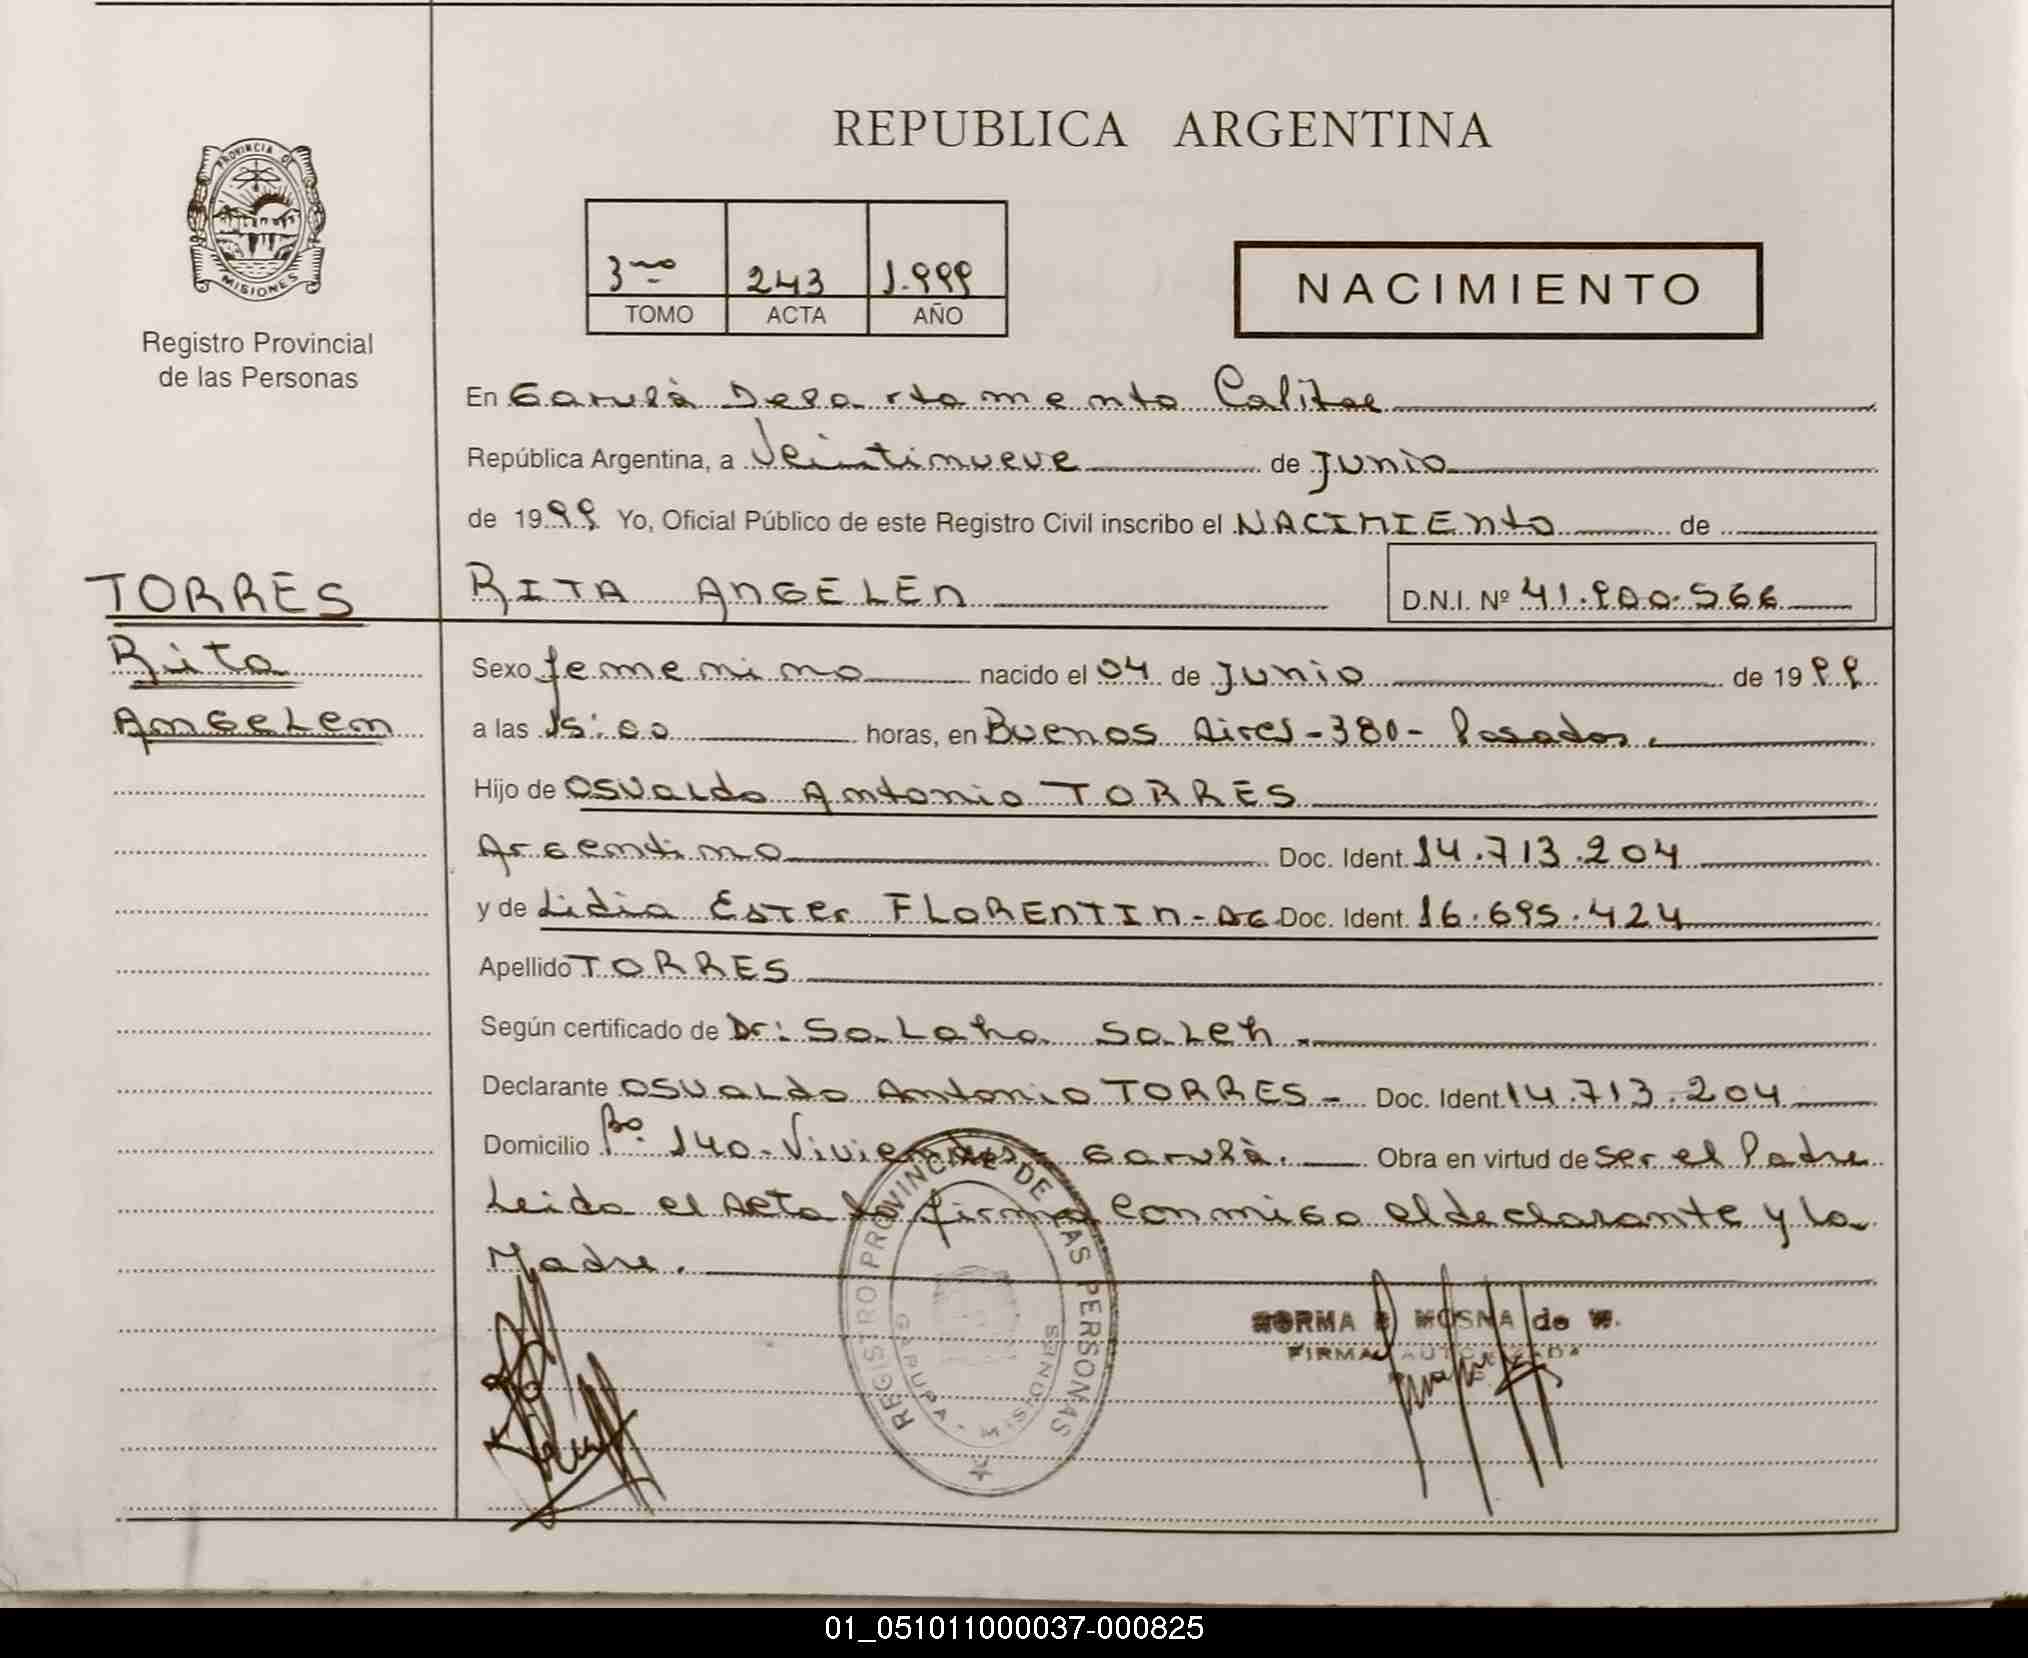 REPUBLICA ARGENTINA
PROVINCIA DE
MISIONES
Registro Provincial
de las Personas
3ro 243 1.999
TOMO ACTA AÑO
NACIMIENTO
En Garupà Departamento Capital
República Argentina, a Veintinueve de Junio
de 1999 Yo, Oficial Público de este Registro Civil inscribo el NACIMIENto de
TORRES
Rita
AngeLen
RITA ANGELEN D.N.I. Nº 41.900.566
Sexo femenino nacido el 04 de Junio de 1999
a las 15:00 horas, en Buenos Aires-380-Posadas.
Hijo de OSVaLdo Antonio TORRES
Argentino Doc. Ident. 14.713.204
y de Lidia Ester FLORENTIN-AG Doc. Ident. 16.695.424
Apellido TORRES
Según certificado de Dr: SaLaha SaLeh.
Declarante OSVaLdo Antonio TORRES- Doc. Ident. 14.713.204
Domicilio Bo. 140-Viviendas-Garupà. Obra en virtud de ser el Padre
Leida el acta la firma conmigo el declarante y la
Madre.
REGISTRO PROVINCIAL DE LAS PERSONAS
GARUPA - MISIONES
NORMA MOSNA de W.
FIRMA AUTORIZADA
01_051011000037-000825